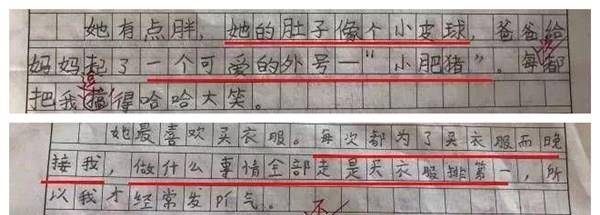 她有点胖，她的肚子像个小皮球，爸爸给
妈妈起了一个可爱的外号—“小肥猪”。每都
把我得哈哈大笑。
她最喜欢买衣服。每次都为了买衣服而晚
接我，做什么事情全部走是买衣服排第一，所
以我才经常发吖气。